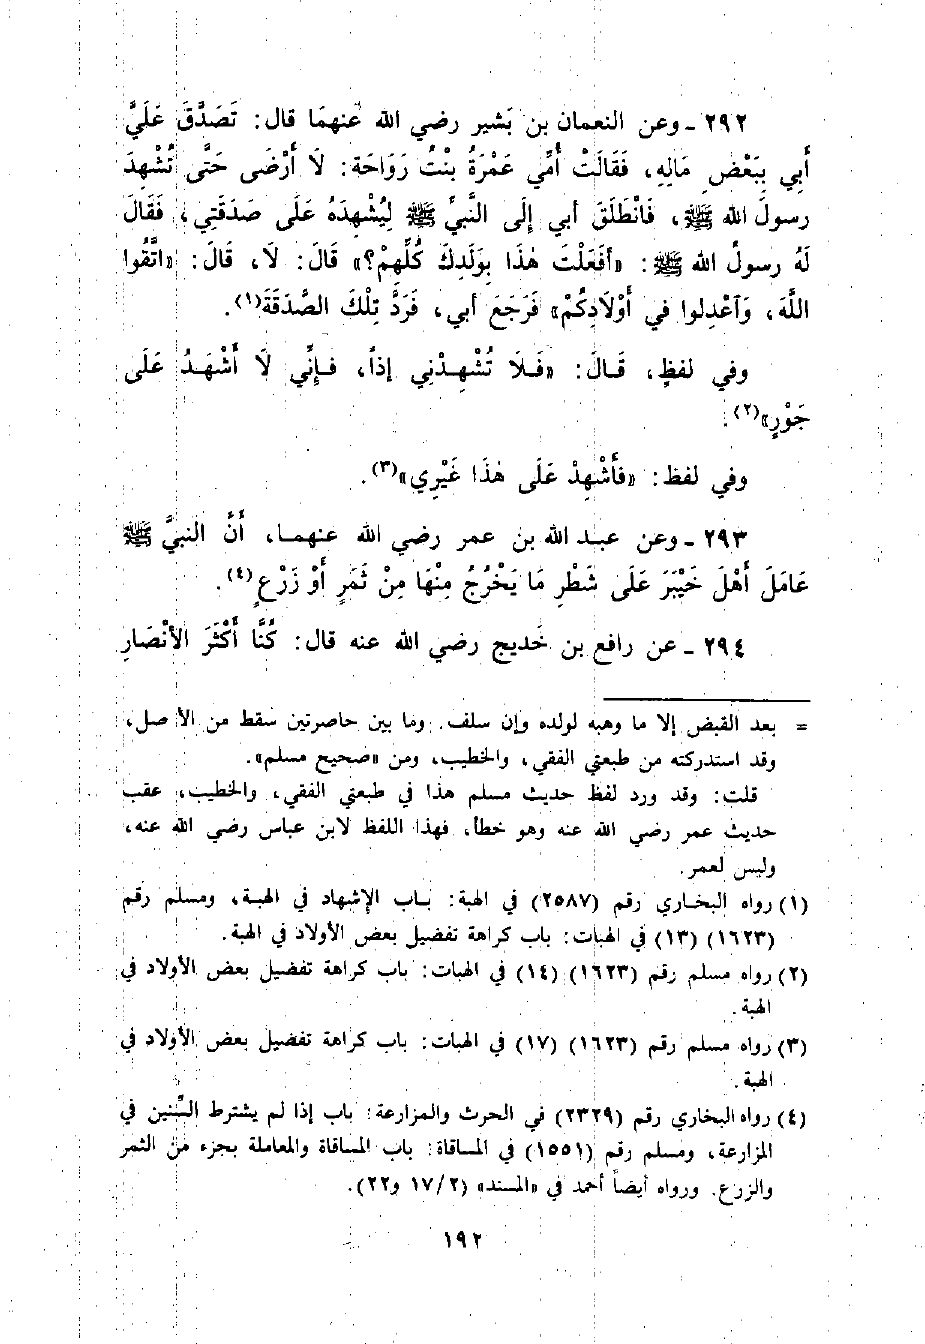 ٢٩٢ ـ وعن النعمان بن بَشير رضي الله عنهمَا قال: تَصَدَّقَ عَلَيَّ
أَبِي بِبَعْضِ مَالِهِ، فَقَالَتْ أُمِّي عَمْرَةُ بِنْتُ رَوَاحَة: لَا أَرْضَى حَتَّى تُشْهِدَ
رسولَ الله ﷺ، فَانْطَلَقَ أبي إِلَى النَّبِيِّ ﷺ لِيُشْهِدَهُ عَلَى صَدَقَتِي، فَقَالَ
لَهُ رسولُ الله ﷺ: «أفَعَلْتَ هٰذَا بِوَلَدِكَ كُلِّهِمْ؟» قَالَ: لَا، قَالَ: «اتَّقُوا
اللَّهَ، وَآعْدِلوا في أَوْلَادِكُمْ» فَرَجَعَ أبي، فَرَدَّ تِلْكَ الصَّدَقَةَ(١).
وفي لفظٍ، قَـالَ: «فَـلَا تُشْهِـدْنِي إذاً، فـإِنِّي لَا أَشْهَـدُ عَلَى
جَوْرٍ»(٢).
وفي لفظ: «فأَشْهِدْ عَلَى هٰذَا غَيْرِي»(٣).
٢٩٣ ـ وعن عبـد الله بن عمر رضي الله عنهمـا، أَنَّ النبيَّ ﷺ
عَامَلَ أَهْلَ خَيْبَرَ عَلَى شَطْرِ مَا يَخْرُجُ مِنْهَا مِنْ ثَمَرٍ أَوْ زَرْعٍ(٤).
٢٩٤ ـ عن رافع بن خَديج رضي الله عنه قال: كُنَّا أَكْثَرَ الأَنْصَارِ
= بعد القبض إلا ما وهبه لولده وإن سلف. وما بين حاصرتين سقط من الأصل،
وقد استدركته من طبعتي الفقي، والخطيب، ومن «صحيح مسلم».
قلت: وقد ورد لفظ حديث مسلم هذا في طبعتي الفقي، والخطيب، عقب
حديث عمر رضي الله عنه وهو خطأ، فهذا اللفظ لابن عباس رضي الله عنه،
وليس لعمر.
(١) رواه البخـاري رقم (٢٥٨٧) في الهبة: بـاب الإشهاد في الهبـة، ومسلم رقم
(١٦٢٣) (١٣) في الهبات: باب كراهة تفضيل بعض الأولاد في الهبة.
(٢) رواه مسلم رقم (١٦٢٣) (١٤) في الهبات: باب كراهة تفضيل بعض الأولاد في
الهبة.
(٣) رواه مسلم رقم (١٦٢٣) (١٧) في الهبات: باب كراهة تفضيل بعض الأولاد في
الهبة.
(٤) رواه البخاري رقم (٢٣٢٩) في الحرث والمزارعة: باب إذا لم يشترط السِّنين في
المزارعة، ومسلم رقم (١٥٥١) في المساقاة: باب المساقاة والمعاملة بجزء من الثمر
والزرع. ورواه أيضاً أحمد في «المسند» (١٧/٢ و٢٢).
١٩٢